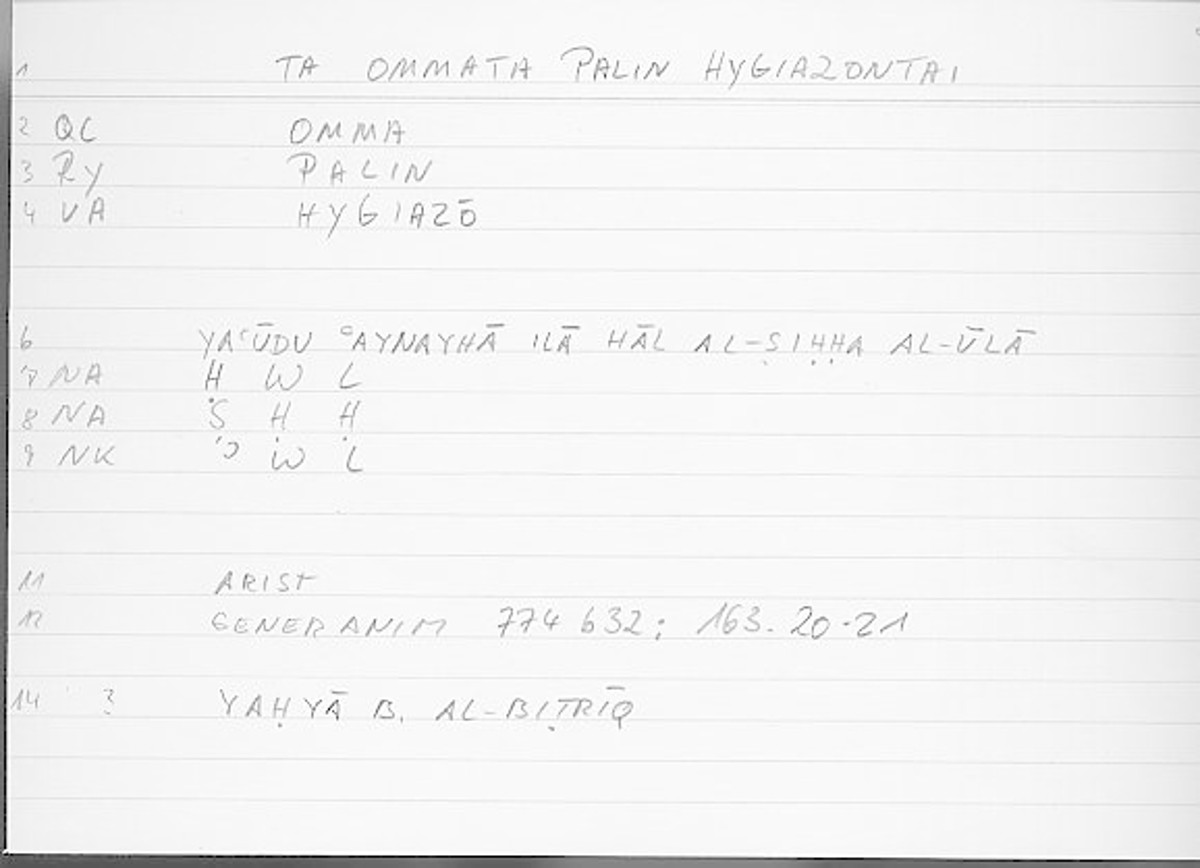 1 TA OMMATA PALIN HYGIAZONTAI
2 QC OMMA
3 RY PALIN
4 VA HYGIAZŌ
6 YAʿŪDU ʿAYNAYHĀ ILĀ HĀL AL-ṢIḤḤA AL-ŪLĀ
7 NA Ḥ W L
8 NA Ṣ Ḥ Ḥ
9 NK ʾ W L
11 ARIST
12 GENER ANIM 774 632; 163. 20-21
14 3 YAḤYĀ B. AL-BIṬRĪQ